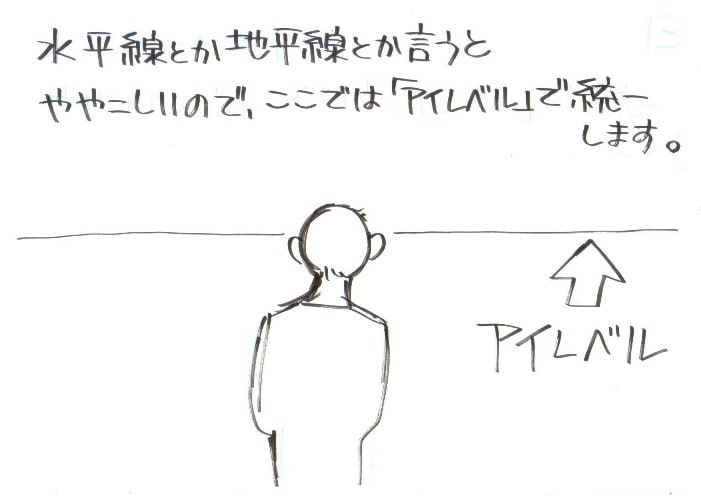 水平線とか地平線とか言うと
ややこしいので、ここでは「アイレベル」で統一
します。
アイレベル